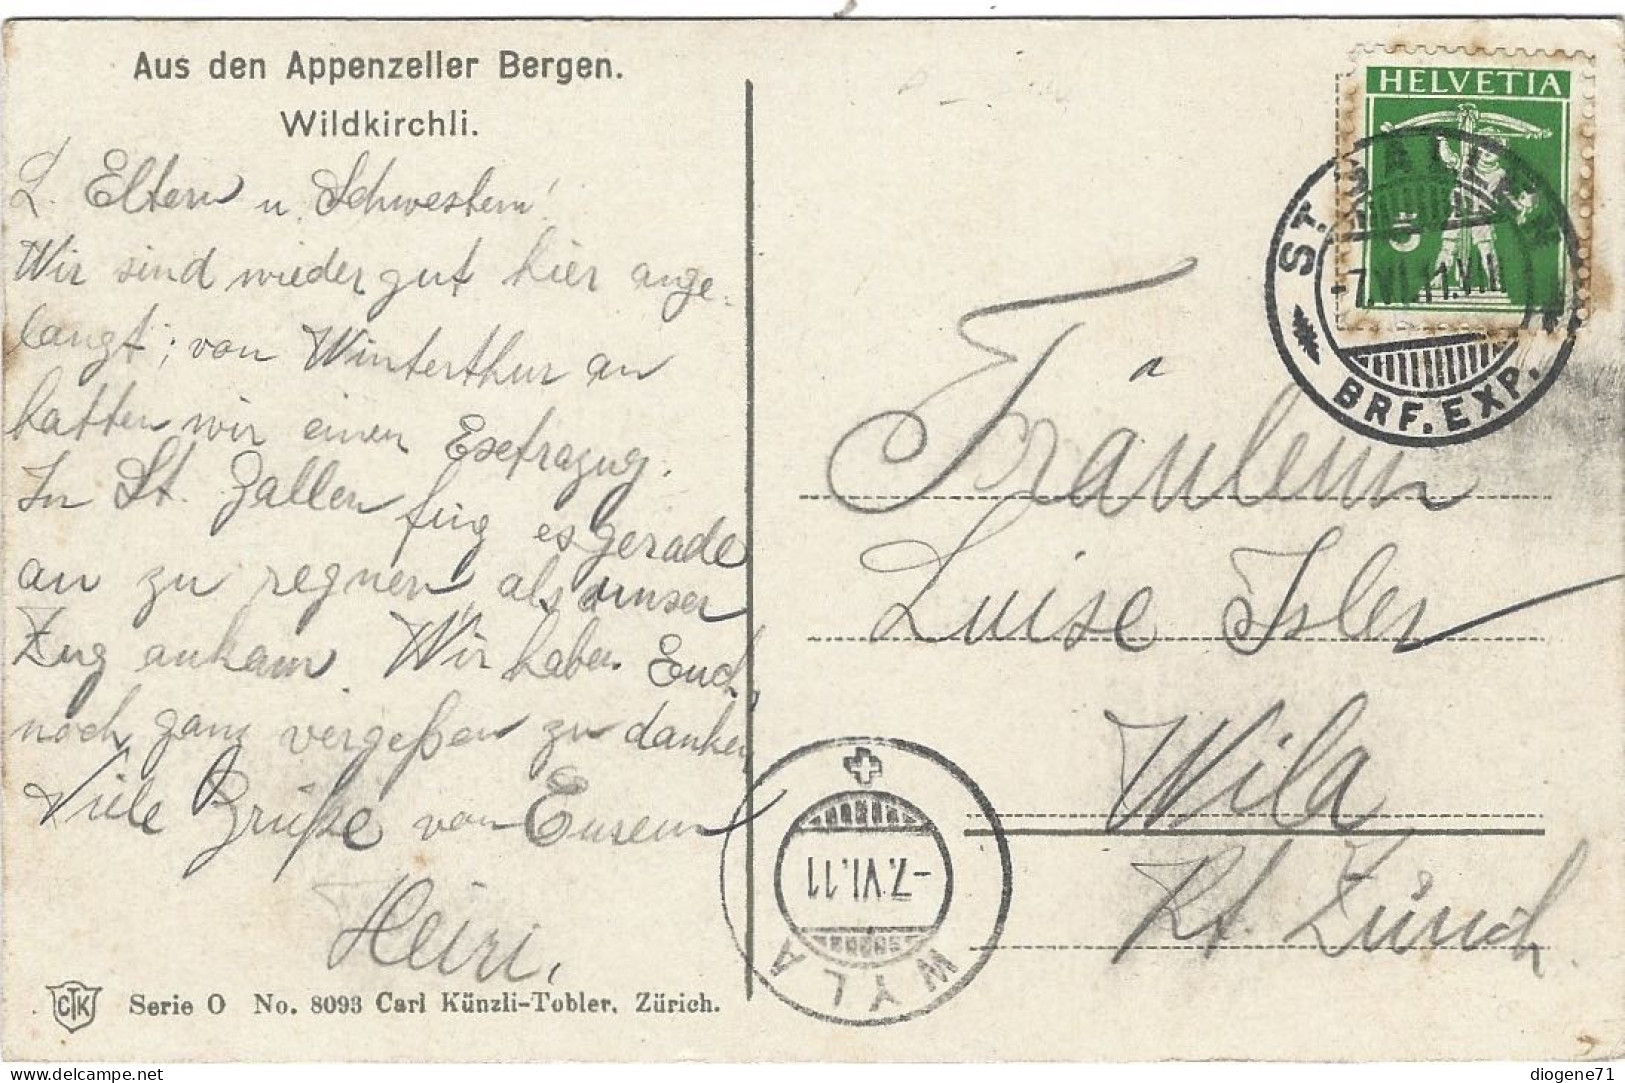 Aus den Appenzeller Bergen.
Wildkirchli.
L. Eltern u. Schwestern!
Wir sind wieder gut hier ange-
langt; von Winterthur an
hatten wir einen Esetrazug.
In St. Gallen fing es gerade
an zu regnen als unser
Zug ankam. Wir haben Euch
noch ganz vergeßen zu danken
Viele Grüße von Eurem
Heiri.
CTK Serie O No. 8093 Carl Künzli-Tobler, Zürich.
HELVETIA
5
ST. GALLEN
-7.VI.11.VIII
BRF. EXP.
Fräulein
Luise Isler
Wila
Kt. Zürich.
WYLA
-7.VI.11
diogene71